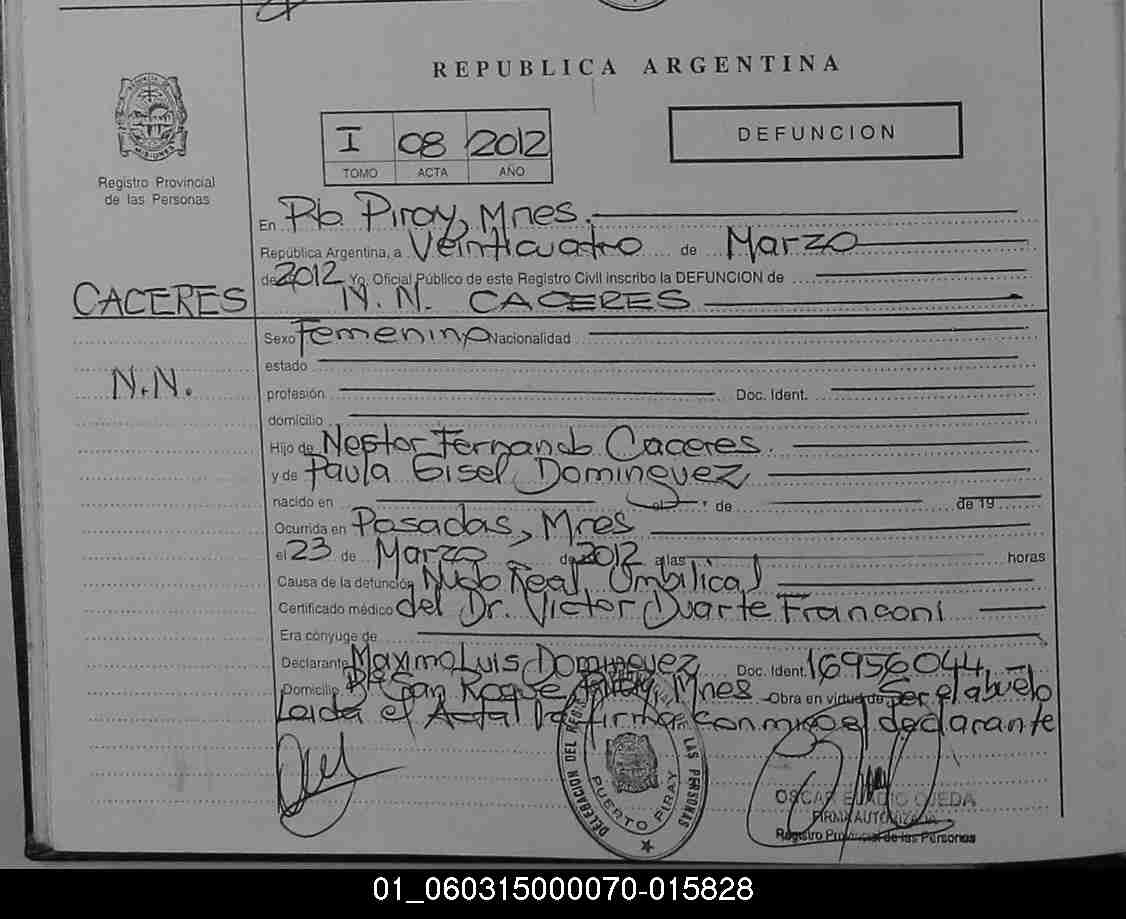 REPUBLICA ARGENTINA
MISIONES
I 08 2012
DEFUNCION
TOMO ACTA AÑO
Registro Provincial
de las Personas
En Pto. Piray, Mnes.
República Argentina, a Veinticuatro de Marzo
de 2012 Yo, Oficial Público de este Registro Civil inscribo la DEFUNCION de
CACERES N. N. CACERES
Sexo Femenino Nacionalidad
estado
N.N.
profesión Doc. Ident.
domicilio
Hijo de Nestor Fernando Caceres.
y de Paula Gisel Dominguez
nacido en el de de 19
Ocurrida en Posadas, Mnes
el 23 de Marzo de 2012 a las horas
Causa de la defunción Nudo Real Umbilical
Certificado médico del Dr. Victor Duarte Franconi
Era cónyuge de
Declarante Maximo Luis Dominguez Doc. Ident. 16956044
Domicilio B° San Roque, Piray, Mnes Obra en virtud de Ser el abuelo
Leida el Acta la firma conmigo el declarante
DELEGACION DEL LAS PERSONAS
PUERTO PIRAY
OSCAR OJEDA
FIRMA AUTORIZADA
Registro Provincial de las Personas
01_060315000070-015828